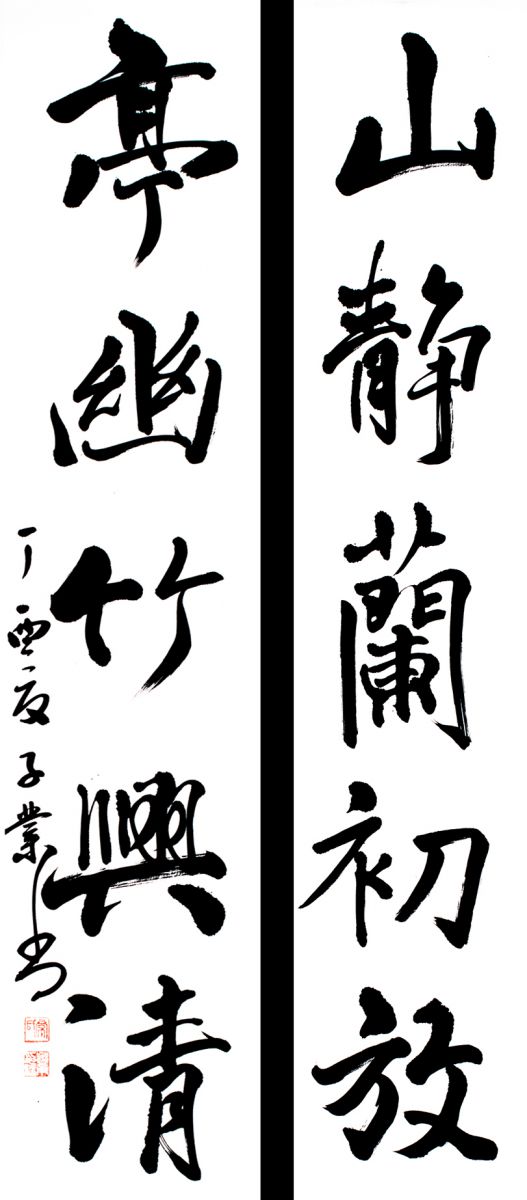 山靜蘭初放
亭幽竹興清
丁酉夏子業書